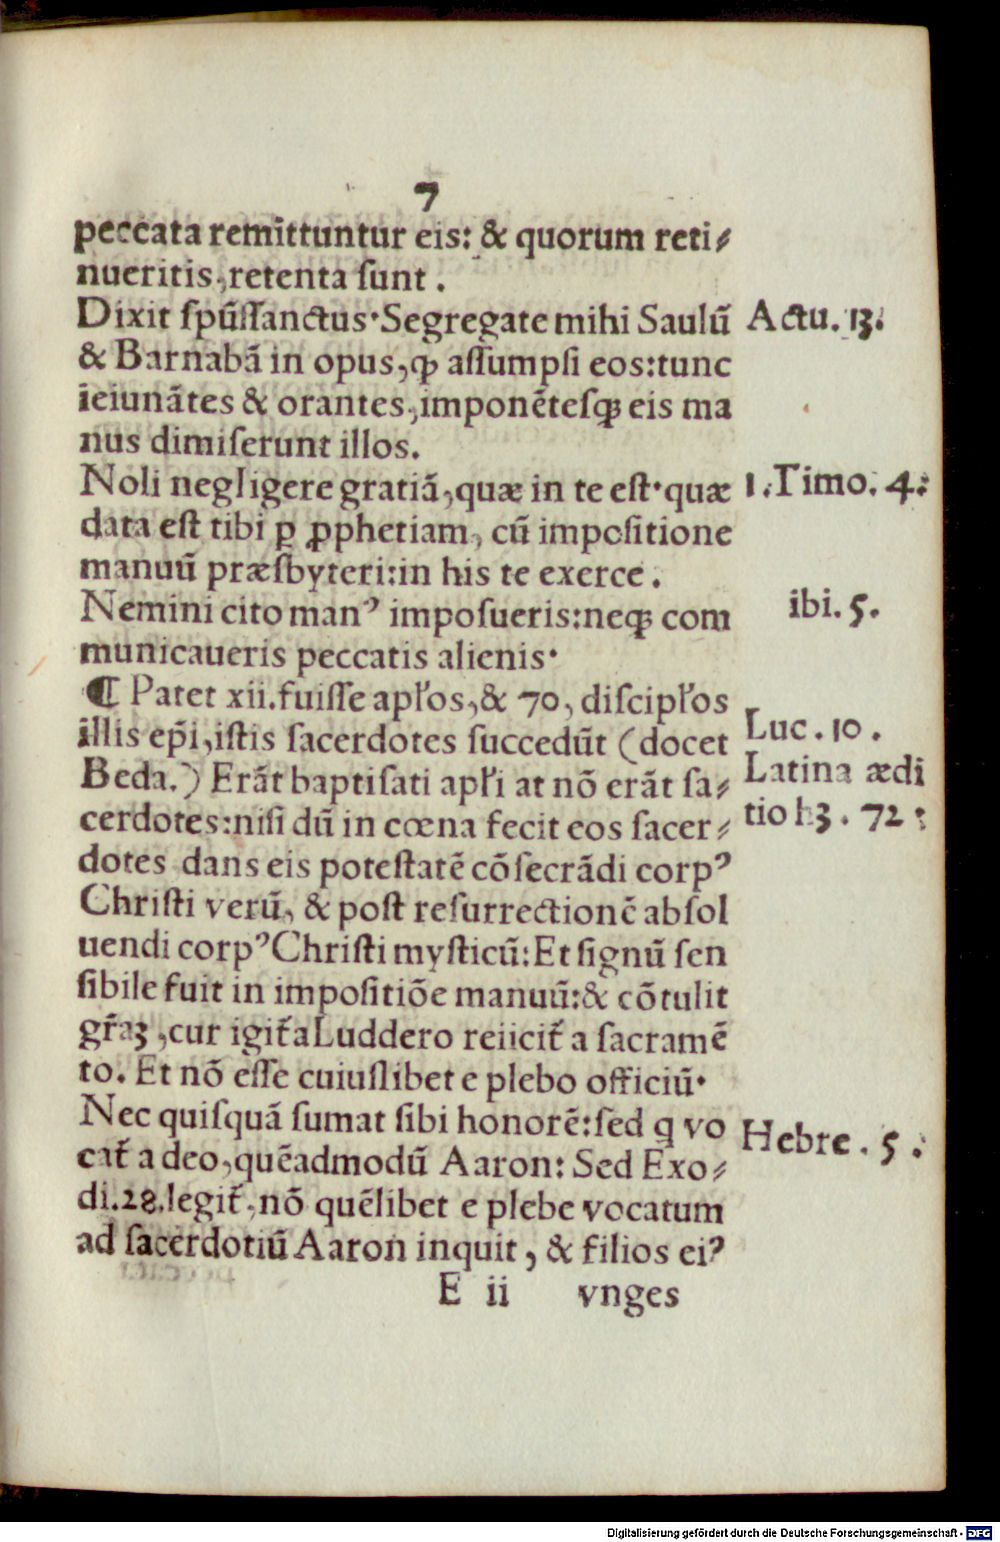 7
peccata remittuntur eis: & quorum reti⸗
nueritis, retenta ſunt.
Dixit ſpūſſanctus·Segregate mihi Saulū Actu. 13.
& Barnabā in opus, ꝙ aſſumpſi eos:tunc
ieiunātes & orantes, imponēteſqꝫ eis ma
nus dimiſerunt illos.
Noli negligere gratiā, quæ in te eſt·quæ 1. Timo. 4.
data eſt tibi ꝑ ꝓphetiam, cū impoſitione
manuū præſbyteri:in his te exerce.
Nemini cito manꝰ impoſueris:neqꝫ com ibi. 5.
municaueris peccatis alienis·
¶ Patet xii. fuiſſe apl̄os, & 70, diſcipl̄os
illis ep̄i, iſtis ſacerdotes ſuccedūt (docet Luc. 10.
Beda.) Erāt baptiſati apl̄i at nō erāt ſa⸗ Latina ædi
cerdotes:niſi dū in cœna fecit eos ſacer⸗ tio hꝫ. 72:
dotes dans eis poteſtatē cōſecrādi corpꝰ
Chriſti verū, & poſt reſurrectionē abſol
uendi corpꝰ Chriſti myſticū: Et ſignū ſen
ſibile fuit in impoſitiōe manuū:& cōtulit
gr̄aꝫ, cur igit̄ a Luddero reiicit̄ a ſacramē
to. Et nō eſſe cuiuſlibet e plebo officiū·
Nec quiſquā ſumat ſibi honorē:ſed q vo Hebre. 5.
cat̄ a deo, quēadmodū Aaron: Sed Exo⸗
di.28.legit̄, nō quēlibet e plebe vocatum
ad ſacerdotiū Aaron inquit, & filios eiꝰ
E ii vnges
Digitalisierung gefördert durch die Deutsche Forschungsgemeinschaft - DFG